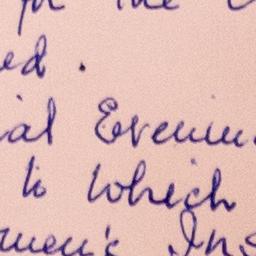 the
ed.
ial Evenin
to which
omen's Ins